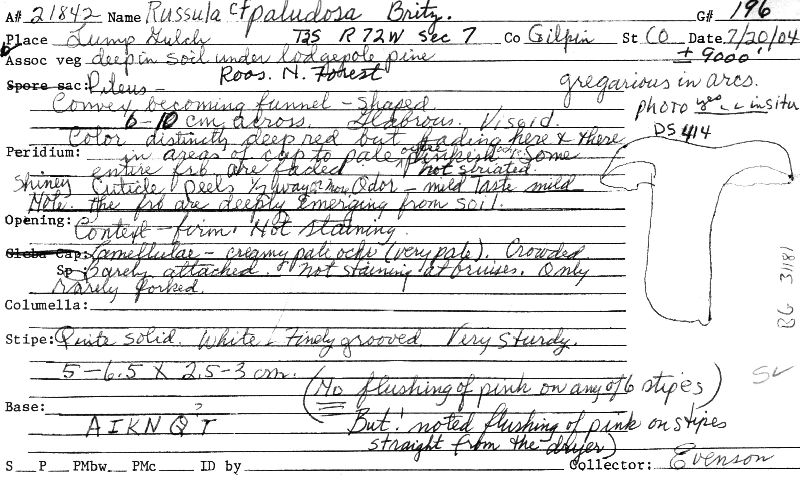 A# 21842 Name Russula cf paludosa Britz. G# 196
Place Lump Gulch T2S R 72W Sec 7 Co Gilpin St CO Date 7/20/04
Assoc veg deep in soil under lodgepole pine ± 9000'
Roos. N. Forest
Spore sac: Pileus - gregarious in arcs.
Convex becoming funnel-shaped photo yes in situ
6-10 cm across. Glabrous. Viscid. DS 414
Color distinctly deep red but fading here & there
Peridium: in areas of cap to pale ochre pinkish. Some
entire frb are faded not striated.
Shiney Cuticle peels 1/2 way or more Odor - mild taste mild
Note. The frb are deeply emerging from soil.
Opening: Context - firm. Not staining.
Gleba Cap: Lamellulae - creamy pale ochr (very pale). Crowded
Sp barely attached. & not staining at bruises. Only
rarely forked.
Columella:
Stipe: Quite solid. White. Finely grooved. Very sturdy.
5-6.5 X 2.5-3 cm.
(No flushing of pink on any of 6 stipes)
Base: A I K N Q? T But! noted flushing of pink on stipes
straight from the dryer)
S__ P__ PMbw__ PMc__ ID by Collector: Evenson
BG 31181